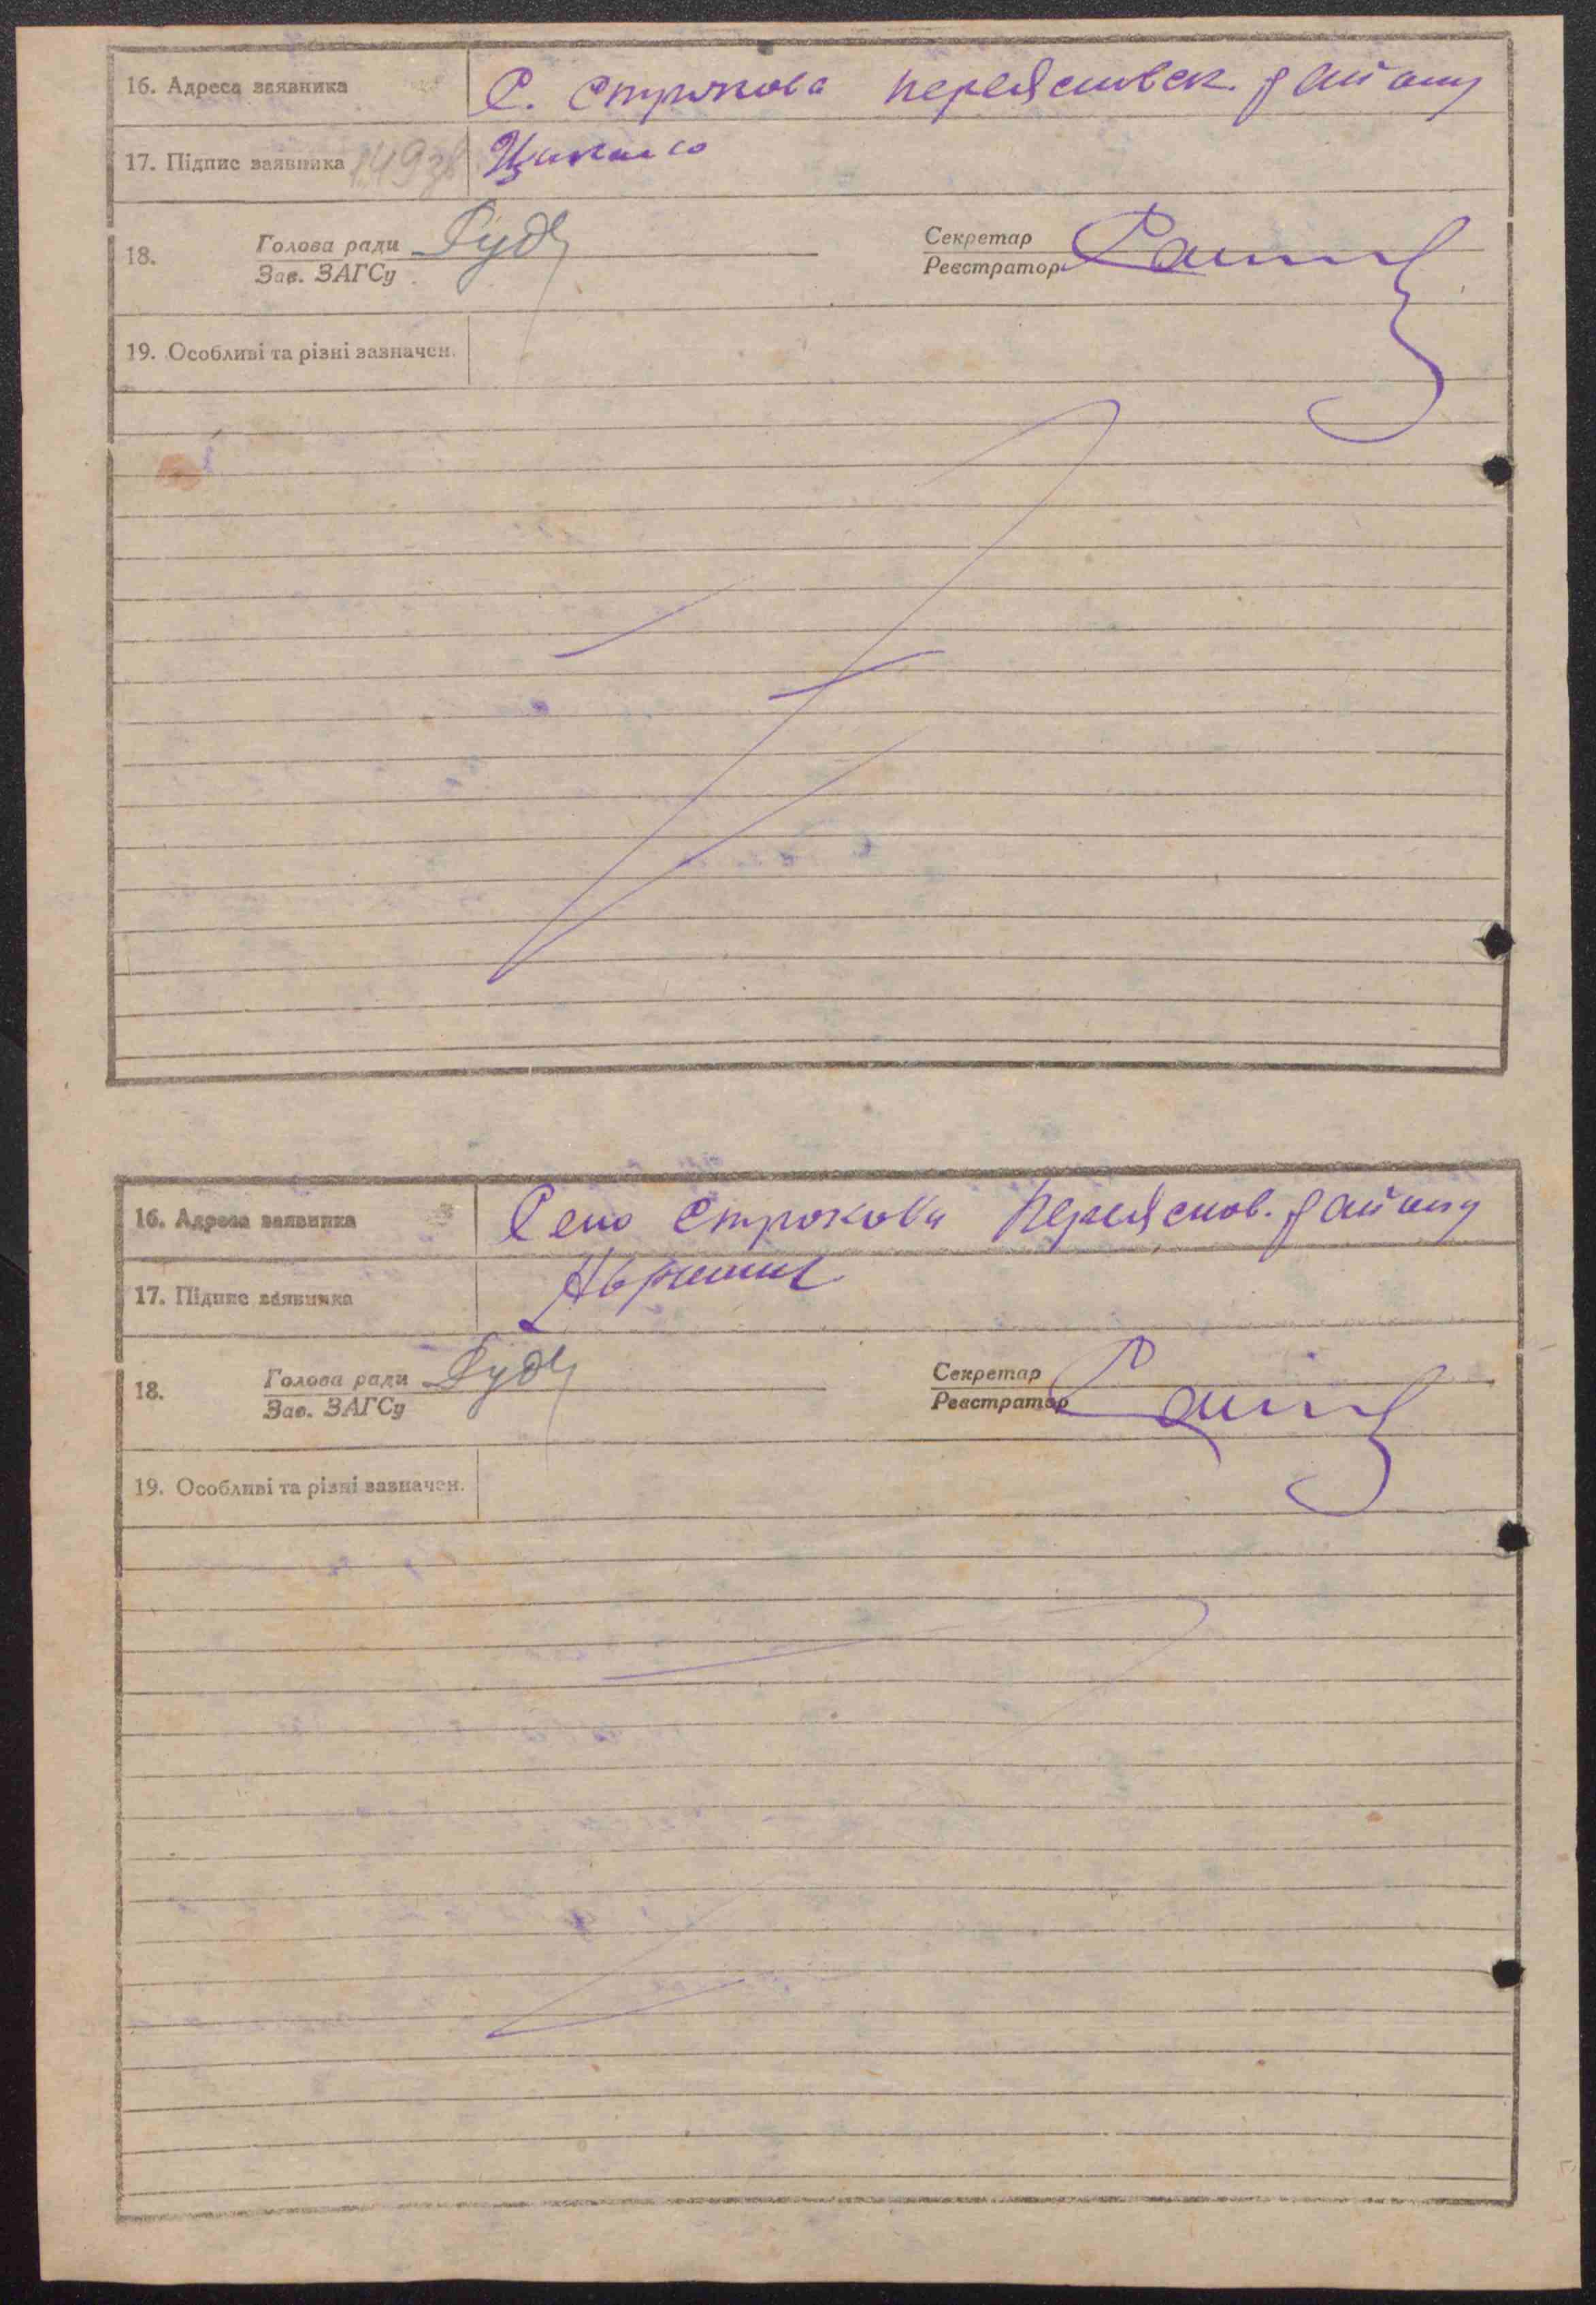 16. Адреса заявника С. Строкова Переяславск. району
17. Підпис заявника 149зв
18. Голова ради Секретар
Зав. ЗАГСу Реєстратор
19. Особливі та різні зазначен.
16. Адреса заявника Село Строкова Переяслов. району
17. Підпис заявника
18. Голова ради Секретар
Зав. ЗАГСу Реєстратор
19. Особливі та різні зазначен.